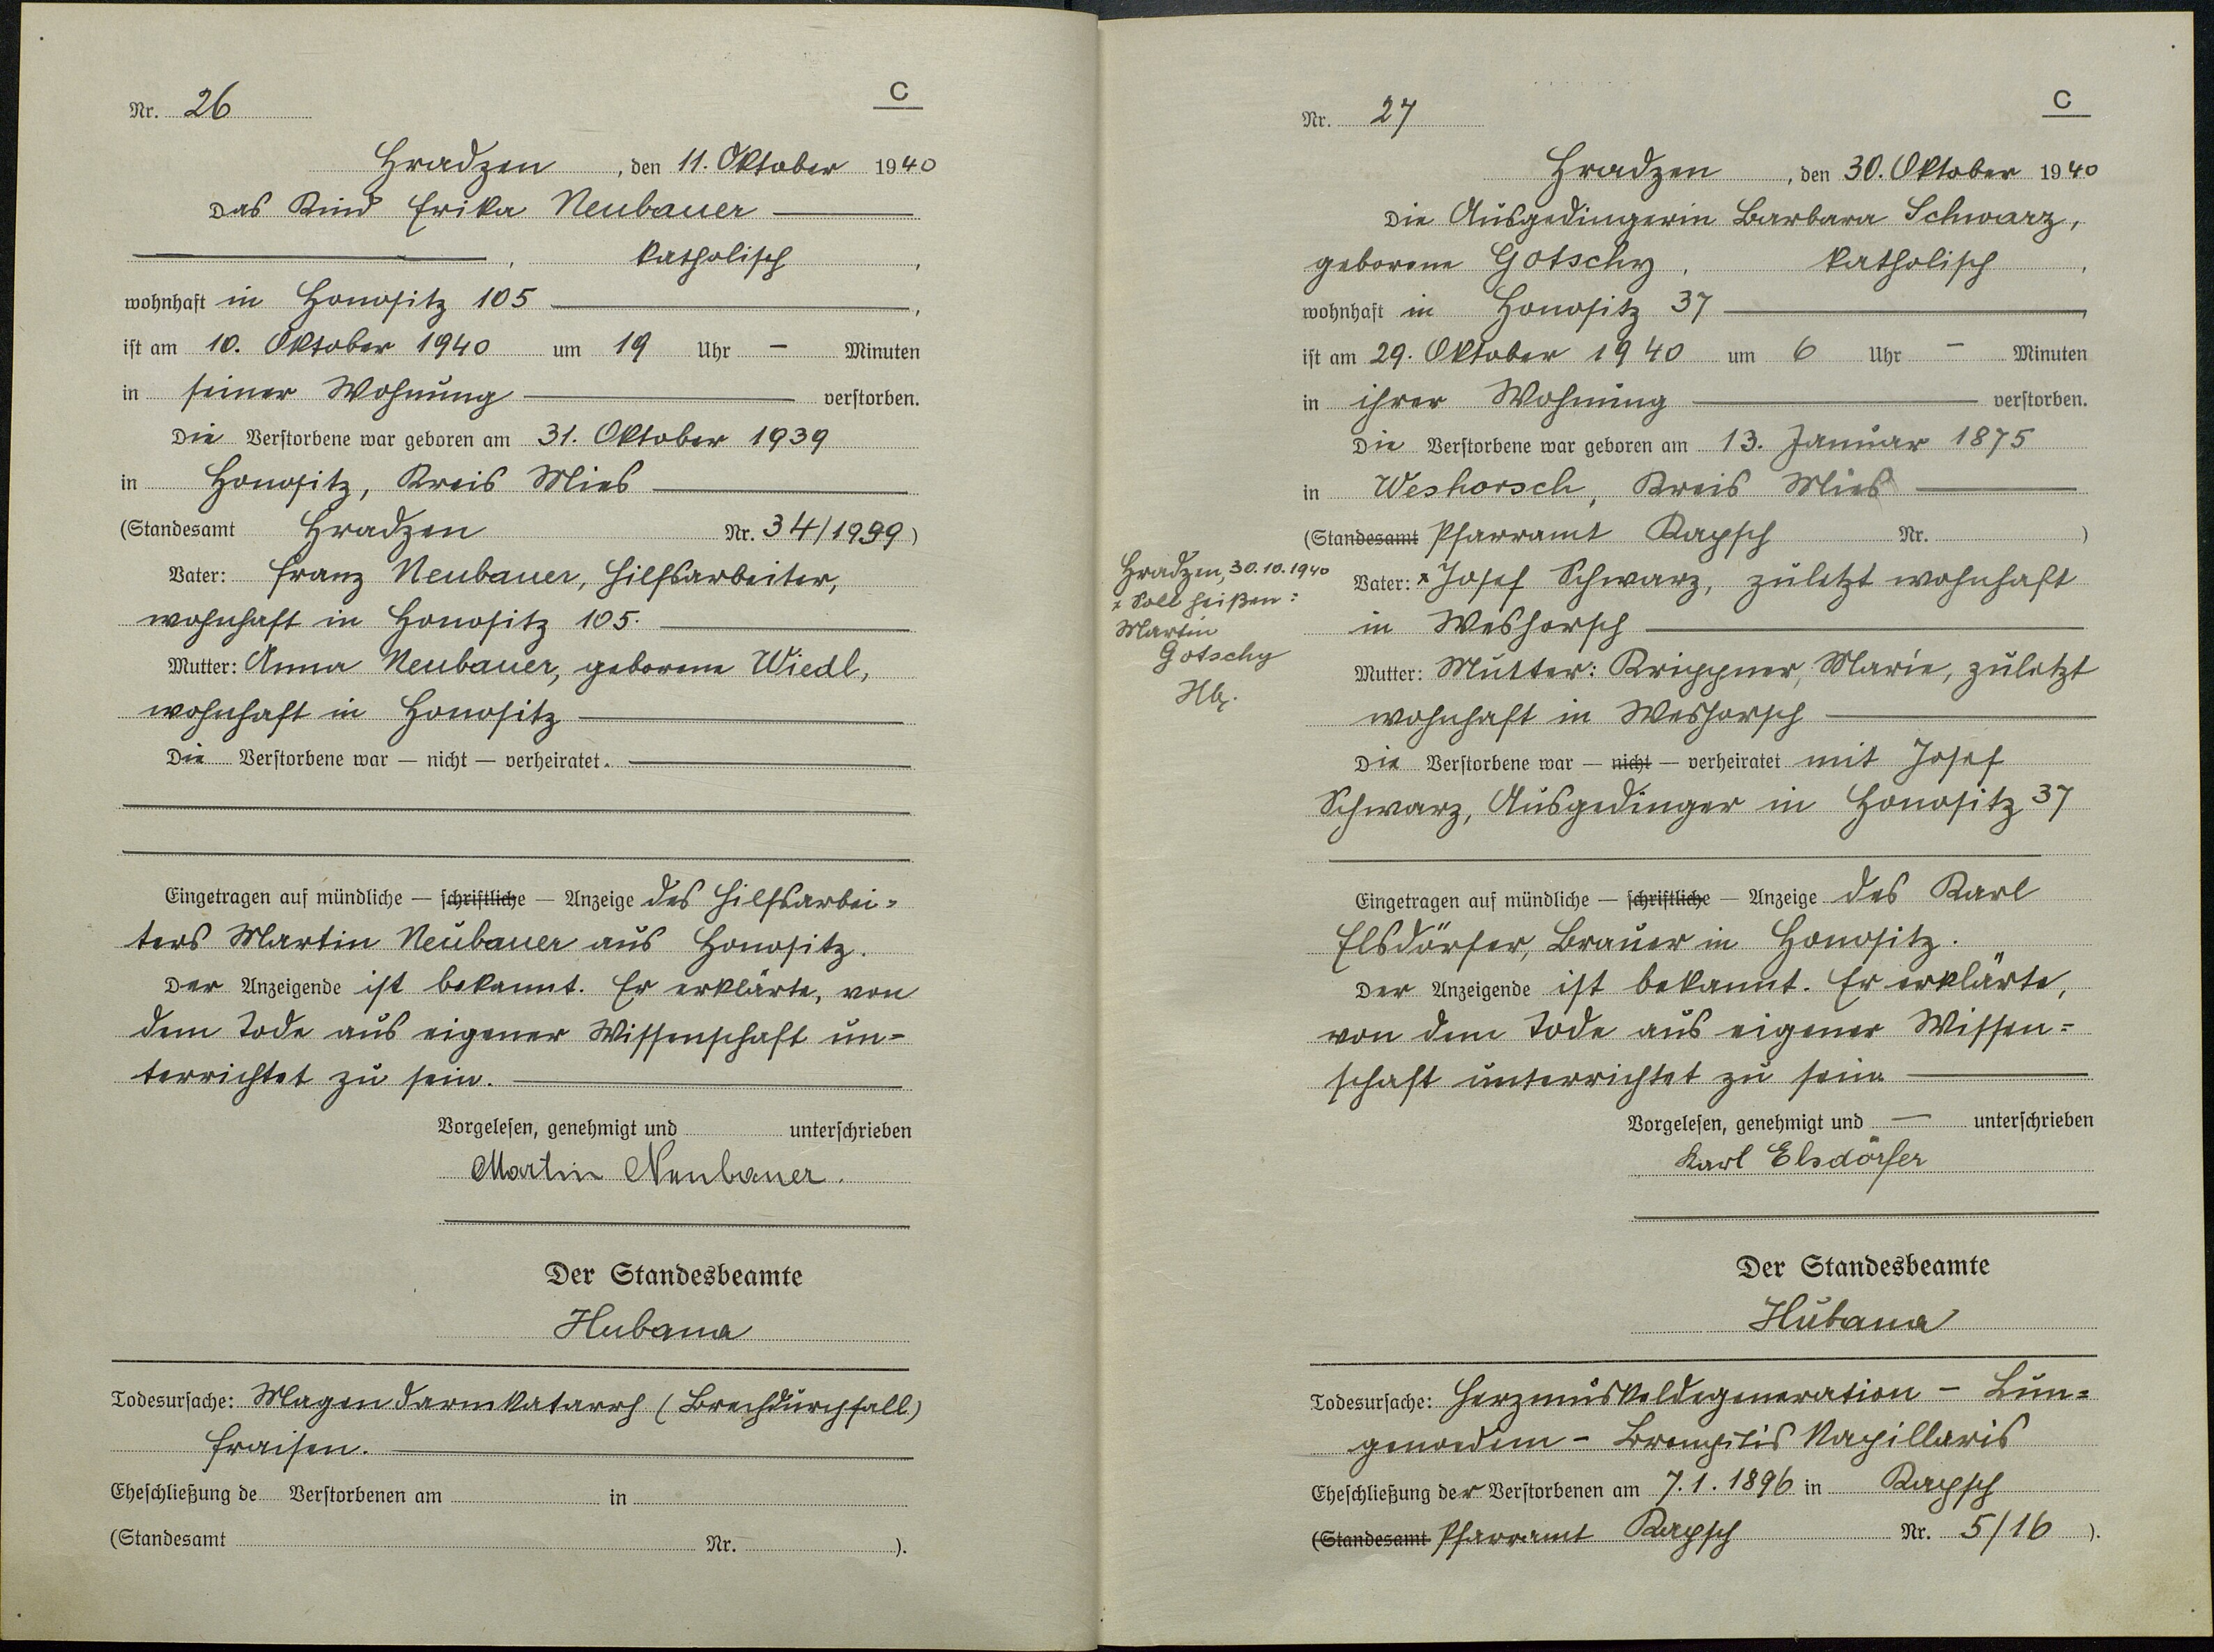 Nr. 26
C
Hradzen, den 11. Oktober 1940
Das Kind Erika Neubauer
katholisch,
wohnhaft in Honositz 105,
ist am 10. Oktober 1940 um 19 Uhr - Minuten
in seiner Wohnung verstorben.
Die Verstorbene war geboren am 31. Oktober 1939
in Honositz, Kreis Mies
(Standesamt Hradzen Nr. 34/1939)
Vater: Franz Neubauer, Hilfsarbeiter,
wohnhaft in Honositz 105.
Mutter: Anna Neubauer, geborene Wiedl,
wohnhaft in Honositz
Die Verstorbene war — nicht — verheiratet.
Eingetragen auf mündliche — schriftliche — Anzeige des Hilfsarbei-
ters Martin Neubauer aus Honositz.
Der Anzeigende ist bekannt. Er erklärte, von
dem Tode aus eigener Wissenschaft un-
terrichtet zu sein.
Vorgelesen, genehmigt und unterschrieben
Martin Neubauer.
Der Standesbeamte
Hubama
Todesursache: Magendarmkatarrh (Brechdurchfall)
Fraisen.
Eheschließung de Verstorbenen am in
(Standesamt Nr. ).
Nr. 27
C
Hradzen, den 30. Oktober 1940
Die Ausgedingerin Barbara Schwarz,
geborene Gotschy, katholisch,
wohnhaft in Honositz 37,
ist am 29. Oktober 1940 um 6 Uhr - Minuten
in ihrer Wohnung verstorben.
Die Verstorbene war geboren am 13. Januar 1875
in Weshorsch, Kreis Mies
(Standesamt Pfarramt Kapsch Nr. )
Vater: x Josef Schwarz, zuletzt wohnhaft
in Weshorsch
Hradzen, 30.10.1940
x Soll heißen:
Martin
Gotschy
Hb.
Mutter: Mutter: Krippner, Marie, zuletzt
wohnhaft in Weshorsch
Die Verstorbene war — nicht — verheiratet mit Josef
Schwarz, Ausgedinger in Honositz 37
Eingetragen auf mündliche — schriftliche — Anzeige des Karl
Elsdörfer, Brauer in Honositz.
Der Anzeigende ist bekannt. Er erklärte,
von dem Tode aus eigener Wissen-
schaft unterrichtet zu sein.
Vorgelesen, genehmigt und — unterschrieben
Karl Elsdörfer
Der Standesbeamte
Hubama
Todesursache: Herzmuskeldegeneration - Lun-
genoedem - Bronchitis kapillaris
Eheschließung der Verstorbenen am 7.1.1896 in Kapsch
(Standesamt Pfarramt Kapsch Nr. 5/16 ).